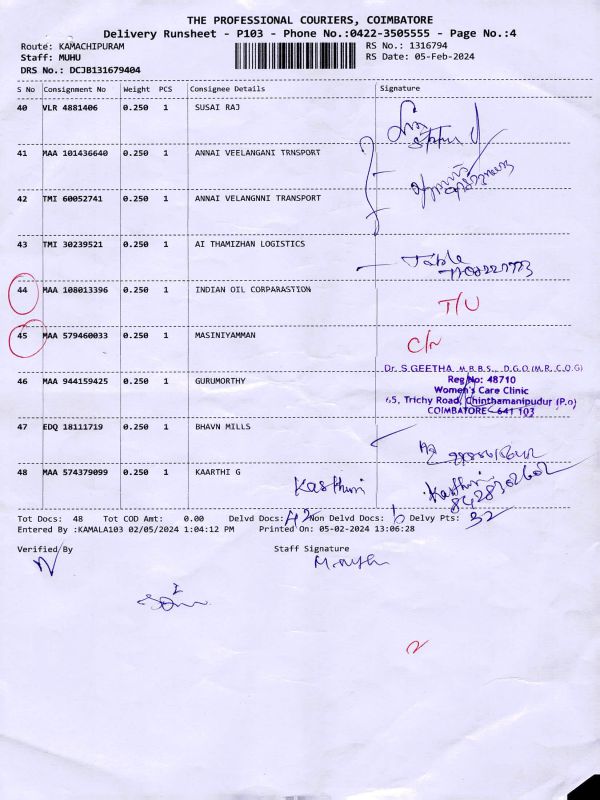 THE PROFESSIONAL COURIERS, COIMBATORE
Delivery Runsheet - P103 - Phone No.:0422-3505555 - Page No.:4
Route: KAMACHIPURAM RS No.: 1316794
Staff: MUHU RS Date: 05-Feb-2024
DRS No.: DCJB131679404
S No Consignment No Weight PCS Consignee Details Signature
40 VLR 4881406 0.250 1 SUSAI RAJ
41 MAA 101436640 0.250 1 ANNAI VEELANGANI TRNSPORT
42 TMI 60052741 0.250 1 ANNAI VELANGNNI TRANSPORT
43 TMI 30239521 0.250 1 AI THAMIZHAN LOGISTICS
Table
44 MAA 108013396 0.250 1 INDIAN OIL CORPARASTION
T/U
45 MAA 579460033 0.250 1 MASINIYAMMAN
Dr. S.GEETHA, M.B.B.S., D.G.O.(M.R.C.O.G)
46 MAA 944159425 0.250 1 GURUMORTHY Reg No: 48710
Women's Care Clinic
65, Trichy Road, Chinthamanipudur (P.o)
COIMBATORE - 641 103
47 EDQ 18111719 0.250 1 BHAVN MILLS
48 MAA 574379099 0.250 1 KAARTHI G Kasthuri Kasthuri
Tot Docs: 48 Tot COD Amt: 0.00 Delvd Docs: 42 Non Delvd Docs: 6 Delvy Pts: 32
Entered By :KAMALA103 02/05/2024 1:04:12 PM Printed On: 05-02-2024 13:06:28
Verified By Staff Signature